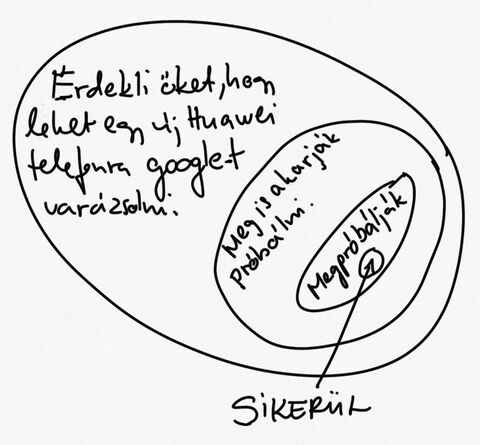 Érdekli őket, hogy
lehet egy új Huawei
telefonra google-t
varázsolni.
Meg is akarják
próbálni.
Megpróbálják
SIKERÜL